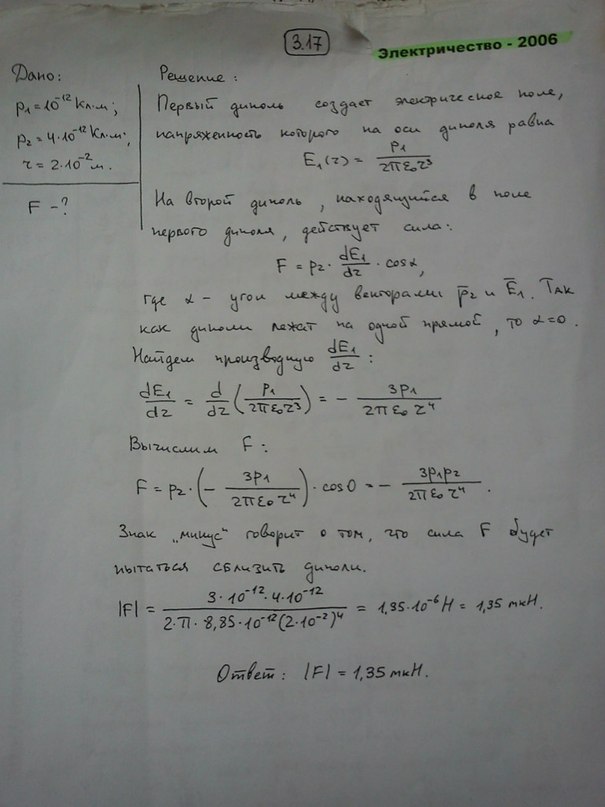 3.17
Электричество - 2006
Дано:
p₁ = 10⁻¹² Кл·м;
p₂ = 4·10⁻¹² Кл·м;
r = 2·10⁻² м.
F - ?
Решение:
Первый диполь создает электрическое поле,
напряженность которого на оси диполя равна
E₁(r) = p₁ / 2πε₀r³
На второй диполь, находящийся в поле
первого диполя, действует сила:
F = p₂ · dE₁/dr · cosα,
где α - угол между векторами p̄₂ и Ē₁. Так
как диполи лежат на одной прямой, то α=0.
Найдем производную dE₁/dr:
dE₁/dr = d/dr (p₁ / 2πε₀r³) = - 3p₁ / 2πε₀r⁴
Вычислим F:
F = p₂ · (- 3p₁ / 2πε₀r⁴) · cos0 = - 3p₁p₂ / 2πε₀r⁴.
Знак „минус" говорит о том, что сила F будет
пытаться сблизить диполи.
|F| = 3·10⁻¹²·4·10⁻¹² / 2·π·8,85·10⁻¹²(2·10⁻²)⁴ = 1,35·10⁻⁶ Н = 1,35 мкН.
Ответ: |F| = 1,35 мкН.